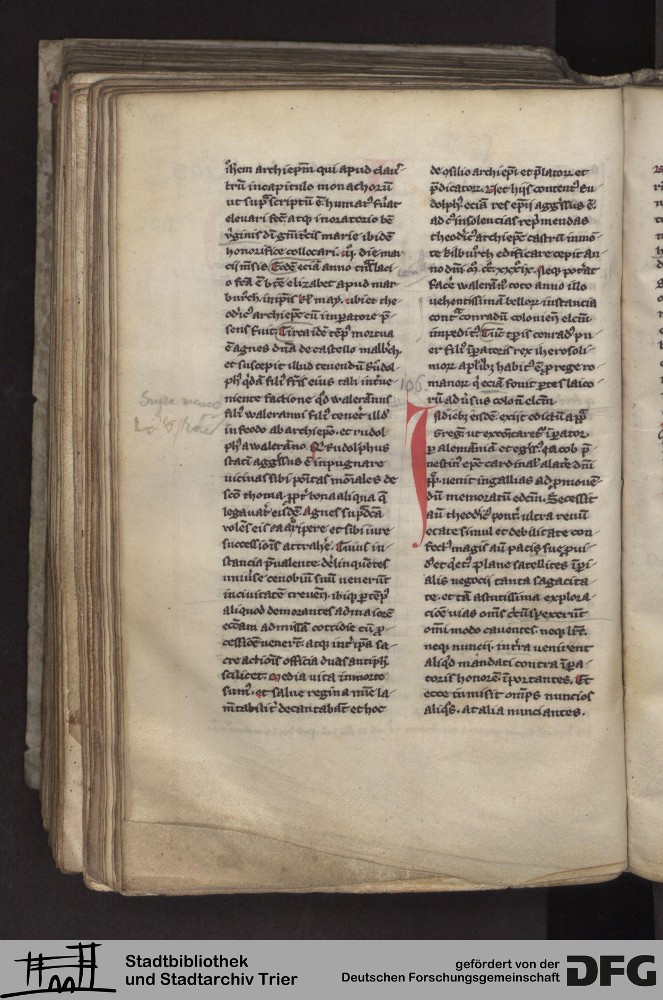 ih̄em archiep̄m qui apud clau
trū in capitulo monachorū
ut sup̄ scriptū ē humat᷒ fu᷑at
eleuari fec̄ atq; in oratorio be᷑
uirginis honorifice collocari. iij. die mar
cii m̄sis. Eodē eciā anno t̄nslaci
o fc̄a ē bt̄e elizabet apud mar
burch. in p̄n̄tis kl̄ maii. ubi et the
odic᷒ archiep̄c cū imp̄atore p̄
sens fuit. Circa idē tēp᷒ mortua
ē agnes dn̄a de castello malb̄ch.
et suscepit illud tenendū Rudol
ph᷒ q̄dā fili᷒ fr̄is eius tali int᷑ue
niente factione qd̄ waleran̄us
fili᷒ waleranni filii tener᷑ illd᷒
in feodo ab archiep̄o. et rudol
ph᷒ a walerāno. Rudolphus
staci aggssus ē inpugnare
uicinas sibi
sc̄o thoma bona aliqua q̄
legauat᷑ eisdē agnes sup̄dc̄a
uolēs eis et sibi iure
successiōis attrahe᷑. Cuius in
stancia p̄ualente. delinquētes
uniuse cenobiū suū uenerūt
in ciuitatē treuen̄. ibiq; p tēp᷒
aliquod demorantes ad maiorē
ecc̄am admissā cottidie cū p
cessiōe uenerūt. atq; int᷑ ip̄a sa
cre actionis officia duas antiph̄.
scilicet. Media uita in morte
sum᷒. et salue regina mīe la
m̄tabilit᷑ decantabāt et hoc
de ꝯsilio archiep̄i et p̄latoꝝ et
p̄dicatoꝝ. Nec hiis content᷒ Ru
dolph᷒ eciā res ep̄ii aggssus ē.
ad c᷒ insolencias rep̄mendas
theodic᷒ archiep̄c castrū in mō
te bilburch edificare cepit an
no dn̄i. m̄. cc. xxxix. Neq; pot᷑at
face᷑ waleran᷒ toto anno illo
uehentissima belloꝝ instancia
cont᷑ conradū colonien̄ elc̄m
impedit᷒. Tūc tp̄is conrad᷒ pu
er fili᷒ ip̄atoris rex iherosoli
moꝝ habit᷒ ē p rege ro
manoꝝ q̄ eciā fouit p̄tes laico
rū adu᷑sus colon̄ elc̄m
Isdieb᷒ eisdē exiit edictū a pp̄
Greg᷒. ut excōicaret᷑ ip̄ator
p alemaniā. et egrss᷒ Jacob p̄
nestin᷒ ep̄c cardinal᷒ a lat᷑e dn̄i
pp̄. uenit in gallias ad pmouē
dū memoratū edc̄m. Secessit
aū theodic᷒ ultra renū
etate simul et debilitate con
fect᷒ magis aū pacis sue pui
d᷒ et qet᷒. plane satellites ip̄i
alis negocii tanta sagacita
te. et tā astutissima explora
cioē uias om̄s circūspexerūt
om̄i modo cauentes. neq; litt᷑.
neq; nuncii. int᷑ra uenirent
aliqd̄ mandati contra ip̄a
toris honorē īportantes. Et
ecce in misit om̄ps nuncios
aliq̄s. at alia nunciantes.
106
Stadtbibliothek
und Stadtarchiv Trier
gefördert von der
Deutschen Forschungsgemeinschaft
DFG